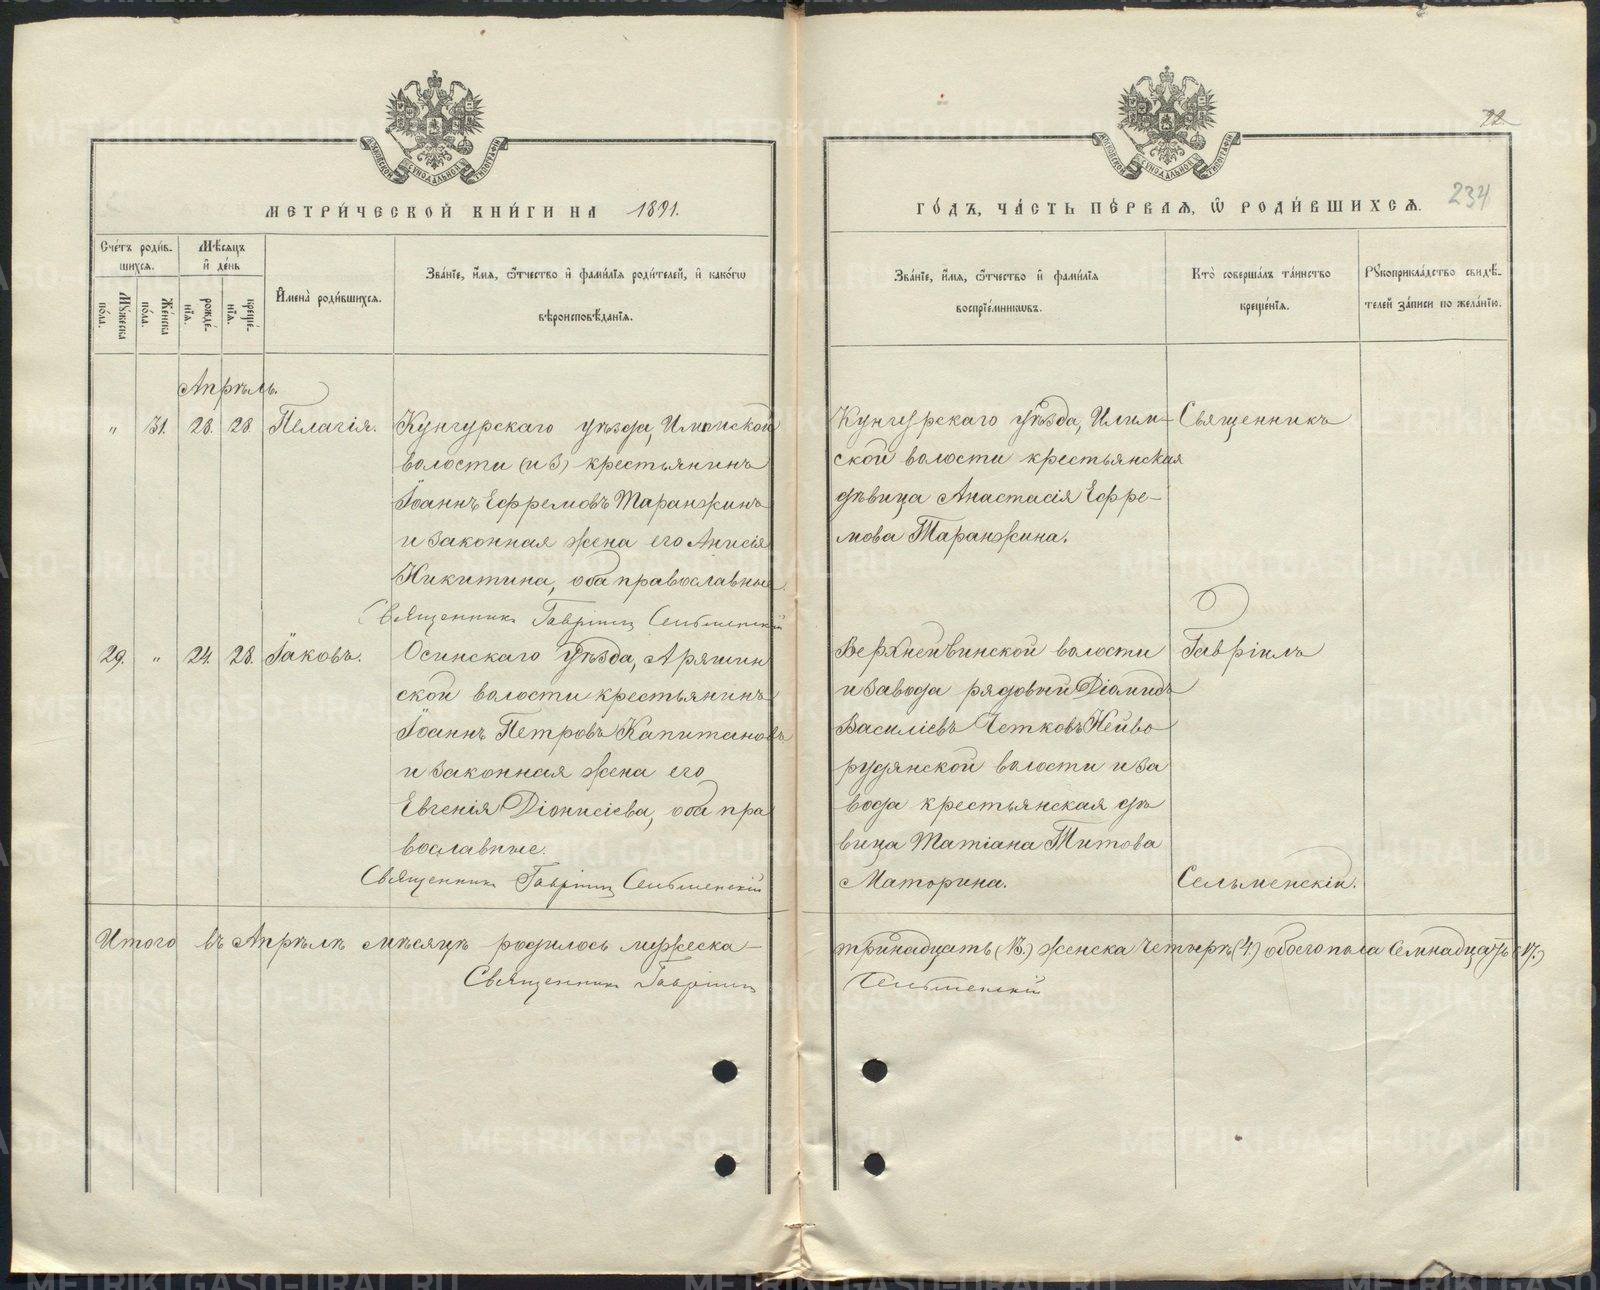 22
234
МЕТРИ́ЧЕСКОЙ КНИ́ГИ НА 1891.
ГО́ДЪ, ЧА́СТЬ ПЕ́РВАѦ, Ѡ РОДИ́ВШИХСѦ.
Сче́тъ роди́в-
шихсѧ.
Мꙋ́жеска по́ла.
Же́нска по́ла.
Мѣ́сѧцъ
и҆ де́нь
рожде́-
нїѧ.
креще́-
нїѧ.
И҆мена̀ роди́вшихсѧ.
Зва́нїе, и҆́мѧ, ѻ҆́тчество и҆ фами́лїѧ роди́телей, и҆ како́гѡ
вѣроисповѣ́данїѧ.
Зва́нїе, и҆́мѧ, ѻ҆́тчество и҆ фами́лїѧ
воспрїе́мникѡвъ.
Кто̀ соверша́лъ та́инство
креще́нїѧ.
Рꙋкоприкла́дство свидѣ́-
телей за́писи по жела́нїю.
Апрѣль.
" 31. 28. 28. Пелагія.
Кунгурскаго уѣзда, Илимской
волости (и З) крестьянинъ
Іоаннъ Ефремовъ Таранжинъ
и законная жена его Анисія
Никитина, оба православные.
Священникъ Гавріилъ Сельменскій
Кунгурскаго уѣзда, Илим-
ской волости крестьянская
дѣвица Анастасія Ефре-
мова Таранжина.
Священникъ
29. " 24. 28. Іаковъ.
Осинскаго уѣзда, Аряшин
ской волости крестьянинъ
Іоаннъ Петровъ Капитановъ
и законная жена его
Евгенія Діонисіева, оба пра
вославные.
Священникъ Гавріилъ Сельменскій
Верхнейвинской волости
и завода рядовый Діомидъ
Василіевъ Четковъ Нейво
рудянской волости и за
вода крестьянская дѣ
вица Татіана Титова
Маторина.
Гавріилъ
Сельменскій.
Итого въ Апрѣлѣ мѣсяцѣ родилось мужеска – тринадцать (13.) женска четыре (4.) обоего пола семнадцать (17.)
Священникъ Гавріилъ Сельменскій